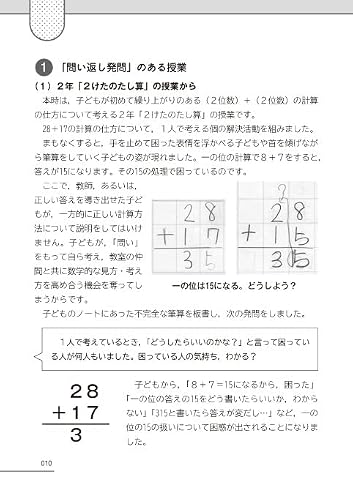 1 「問い返し発問」のある授業
(1)2年「2けたのたし算」の授業から
本時は、子どもが初めて繰り上がりのある(2位数)+(2位数)の計算
の仕方について考える2年「2けたのたし算」の授業です。
28+17の計算の仕方について、1人で考える個の解決活動を組みました。
まもなくすると、手を止めて困った表情を浮かべる子どもや首を傾げなが
ら筆算をしていく子どもの姿が現れました。一の位の計算で8+7をすると、
答えが15になります。その15の処理で困っているのです。
ここで、教師、あるいは、
正しい答えを導き出せた子ど
もが、一方的に正しい計算方
法について説明をしてはいけ
ません。子どもが、「問い」
をもって自ら考え、教室の仲
間と共に数学的な見方・考え
方を高め合う機会を奪ってし
まうからです。
2 8
+ 1 7
3 5
2 8
+ 1 5
3 5
一の位は15になる。どうしよう?
子どものノートにあった不完全な筆算を板書し、次の発問をしました。
1人で考えているとき、「どうしたらいいのかな?」と言って困ってい
る人が何人もいました。困っている人の気持ち、わかる?
28
+17
3
子どもから、「8+7=15になるから、困った」
「一の位の答えの15をどう書いたらいいか、わから
ない」「315と書いたら答えが変だし…」など、一の
位の15の扱いについて困惑が出されることになりま
した。
010